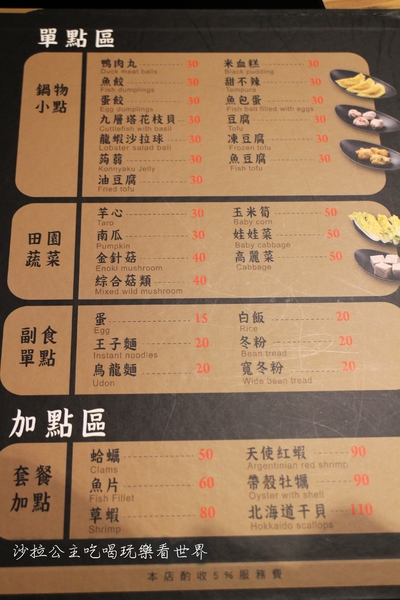 單點區
鍋物小點
鴨肉丸 30
Duck meat balls
魚餃 30
Fish dumplings
蛋餃 30
Egg dumplings
九層塔花枝貝 30
Cuttlefish with basil
龍蝦沙拉球 30
Lobster salad ball
蒟蒻 30
Konnyaku Jelly
油豆腐 30
Fried tofu
米血糕 30
Black pudding
甜不辣 30
Tempura
魚包蛋 30
Fish ball filled with eggs
豆腐 30
Tofu
凍豆腐 30
Frozen tofu
魚豆腐 30
Fish tofu
田園蔬菜
芋心 30
Taro
南瓜 30
Pumpkin
金針菇 40
Enoki mushroom
綜合菇類 40
Mixed wild mushroom
玉米筍 50
Baby corn
娃娃菜 50
Baby cabbage
高麗菜 50
Cabbage
副食單點
蛋 15
Egg
王子麵 20
Instant noodles
烏龍麵 20
Udon
白飯 20
Rice
冬粉 20
Bean tread
寬冬粉 20
Wide bean tread
加點區
套餐加點
蛤蠣 50
Clams
魚片 60
Fish Fillet
草蝦 80
Shrimp
天使紅蝦 90
Argentinian red shrimp
帶殼牡蠣 90
Oyster with shell
北海道干貝 110
Hokkaido scallops
沙拉公主吃喝玩樂看世界
本店酌收5%服務費